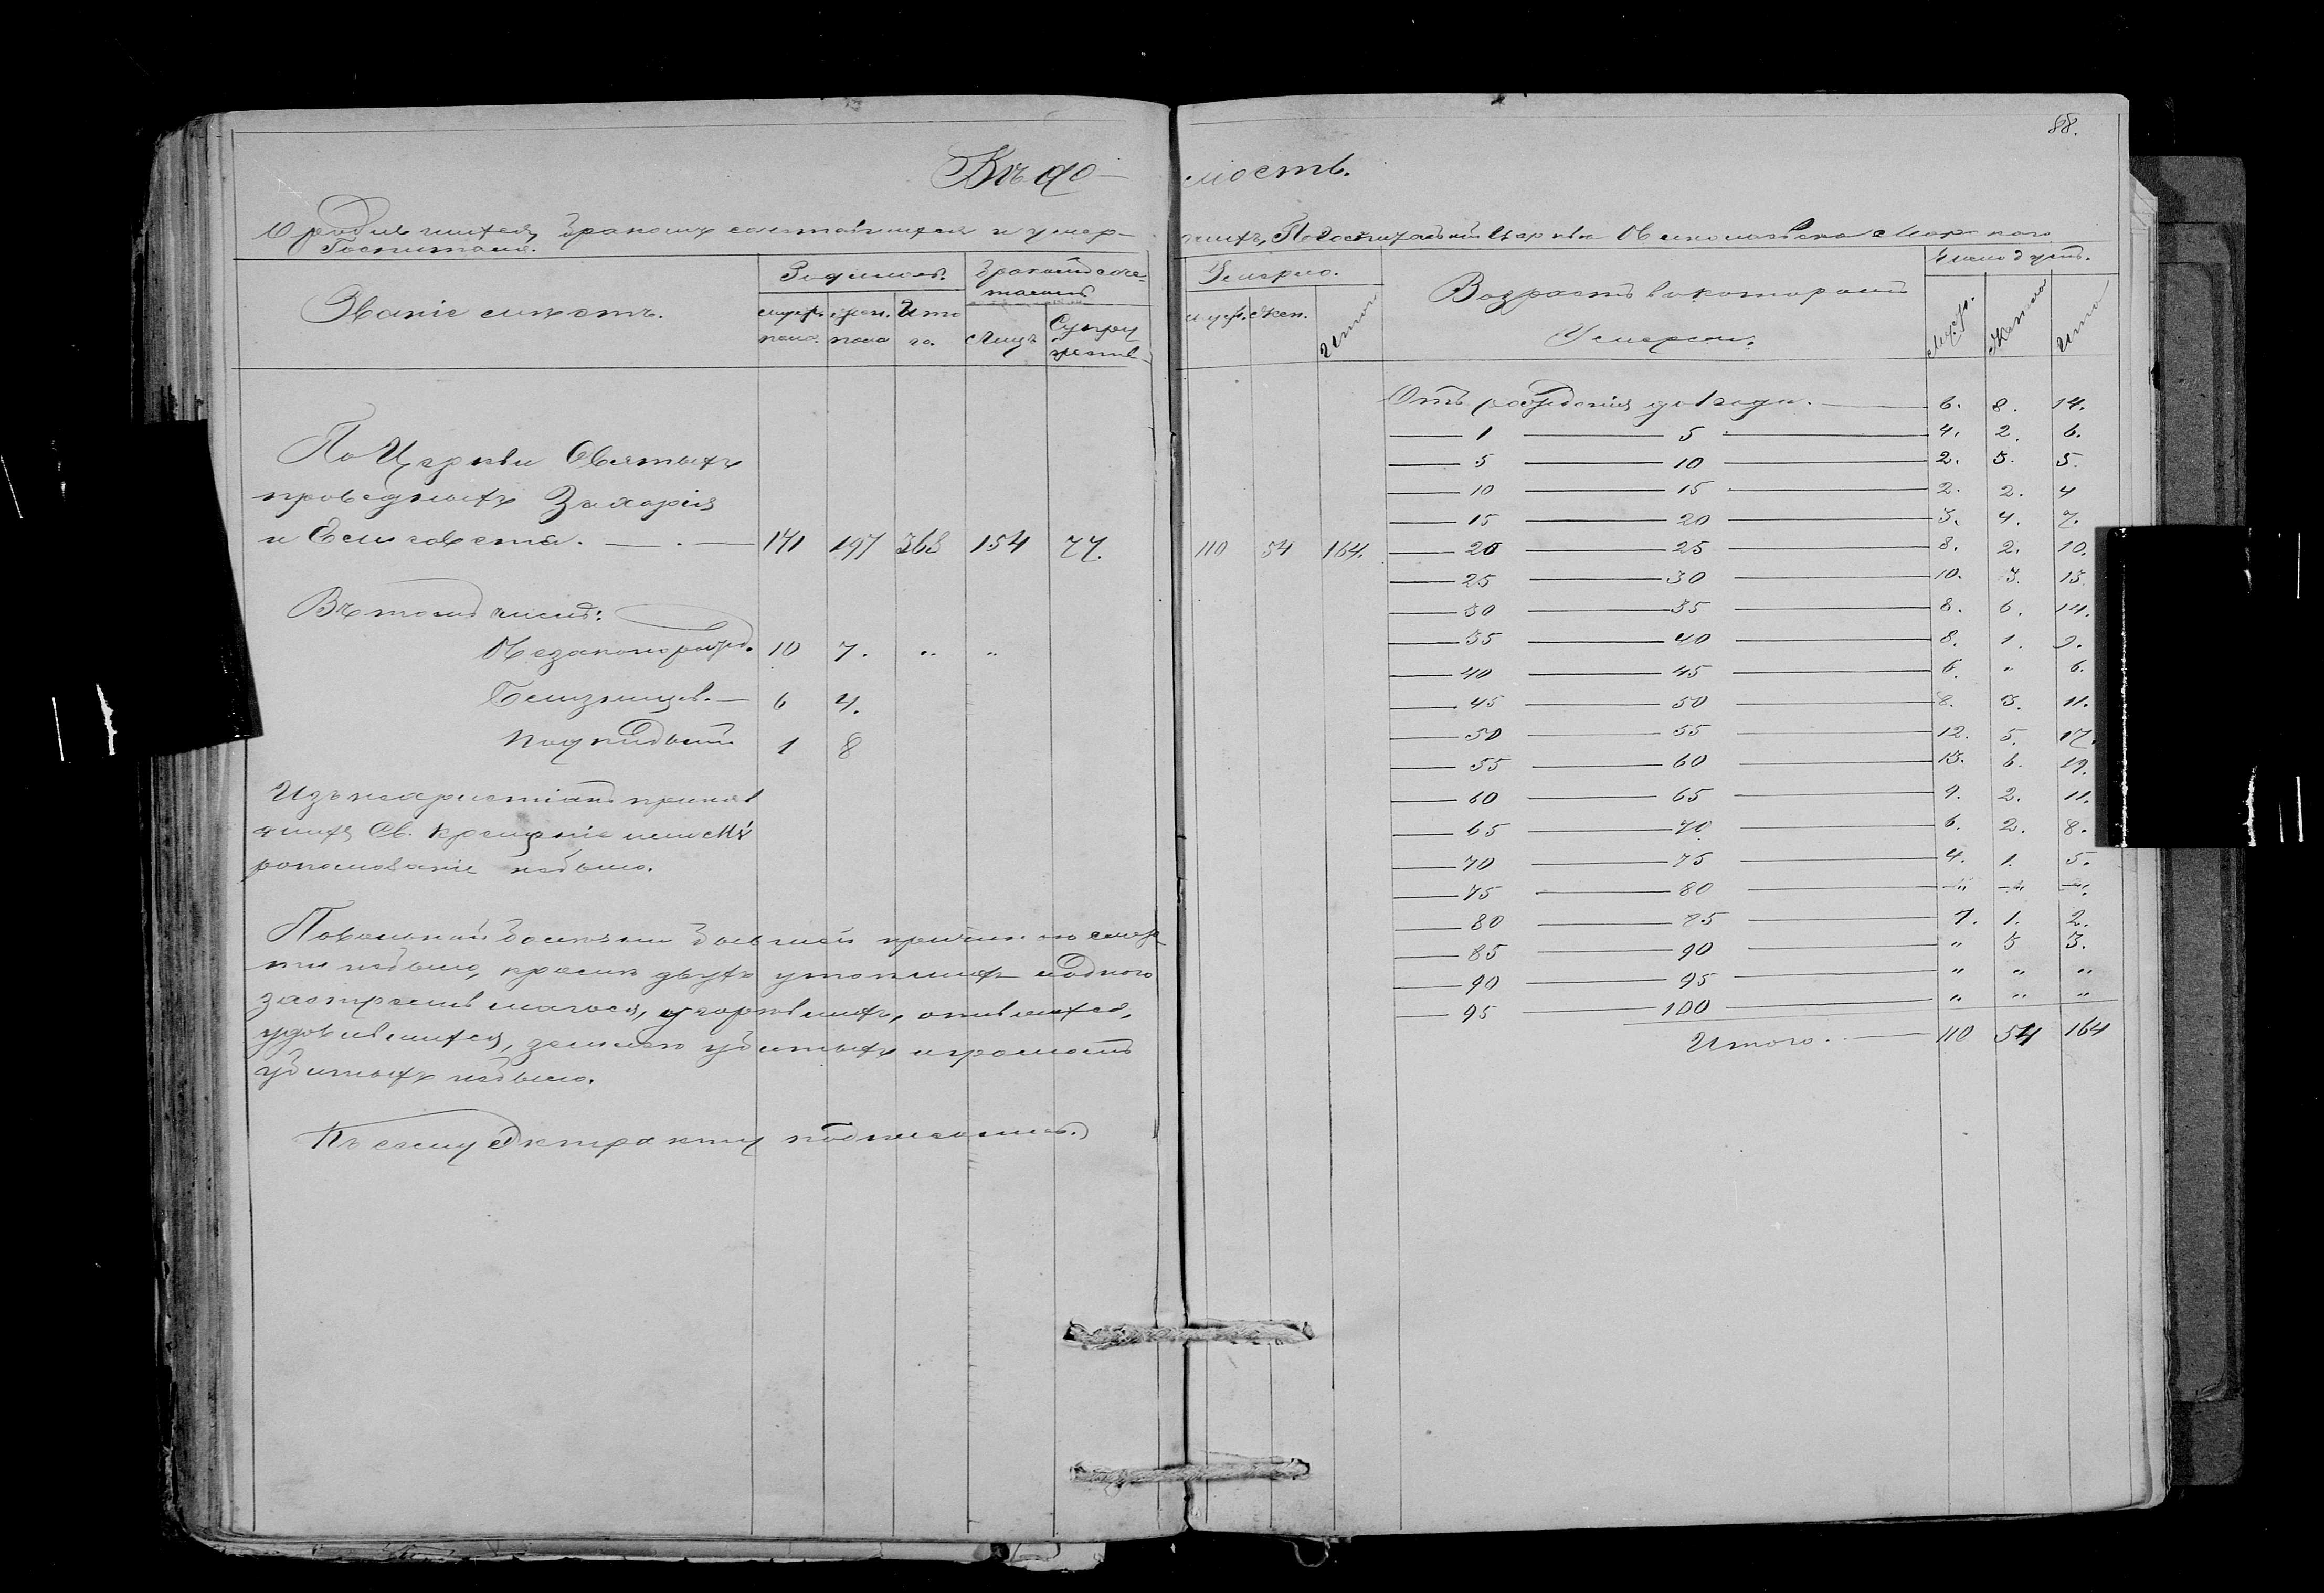 88.
Вѣдо- мость.
О родившихся, бракомъ сочетавшихся и умер- шихъ, По Госпитальной Церкви Николаевскаго Морскаго
Госпиталя.
Званіе мѣстъ.
Родилось.
Бракомъ соче-
талось
мужес. пола.
жен. пола
Ито го.
Лицъ
Супру жествъ
Умерло.
муж.
жен.
Итого
Возрастъ въ которомъ
Умерли.
Число душъ.
Мужес.
Женска
Итого
По Церкви Святыхъ
праведныхъ Захарія
и Елисаветы. — . — 171 197 368 154 77. 110 54 164.
Въ томъ числѣ:
Незаконорожд. 10 7. „ „
Близнецов. — 6 4.
Подкидыш. 1 8
Изъ нехристіанъ приняв
шихъ Св. Крещеніе или Мѵ́
ропомазаніе небыло.
небыло, кромѣ двухъ утопших и одного
застрѣлившагося, угорѣвшихъ, опившихся,
удавившихся, зельемъ убитыхъ и громомъ
убитыхъ небыло.
Къ сему Экстракту подписались.
Отъ рожденія до 1 года. — 6. 8. 14.
— 1 — 5 — 4. 2. 6.
— 5 — 10 — 2. 3. 5.
— 10 — 15 — 2. 2. 4
— 15 — 20 — 3. 4. 7.
— 20 — 25 — 8. 2. 10.
— 25 — 30 — 10. 3. 13.
— 30 — 35 — 8. 6. 14.
— 35 — 40 — 8. 1. 9.
— 40 — 45 — 6. „ 6.
— 45 — 50 — 8. 3. 11.
— 50 — 55 — 12. 5. 17.
— 55 — 60 — 13. 6. 19.
— 60 — 65 — 9. 2. 11.
— 65 — 70 — 6. 2. 8.
— 70 — 75 — 4. 1. 5.
— 75 — 80 — „ — „ — „.
— 80 — 85 — 1. 1. 2.
— 85 — 90 — „ 3 3.
— 90 — 95 — „ „ „
— 95 — 100 — „ „ „
Итого. — 110 54 164